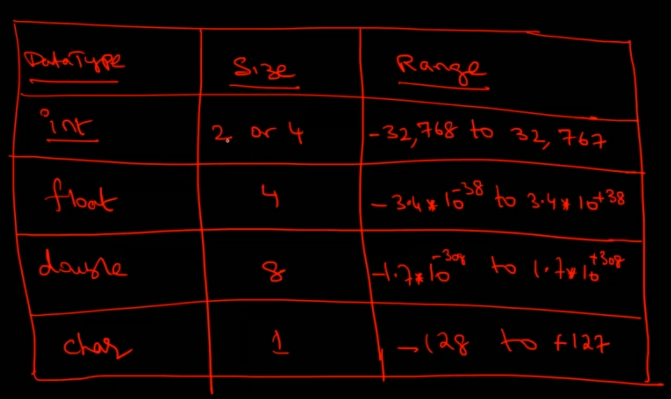 DataType Size Range
int 2 or 4 -32,768 to 32,767
float 4 -3.4*10^-38 to 3.4*10^+38
double 8 -1.7*10^-308 to 1.7*10^+308
char 1 -128 to +127